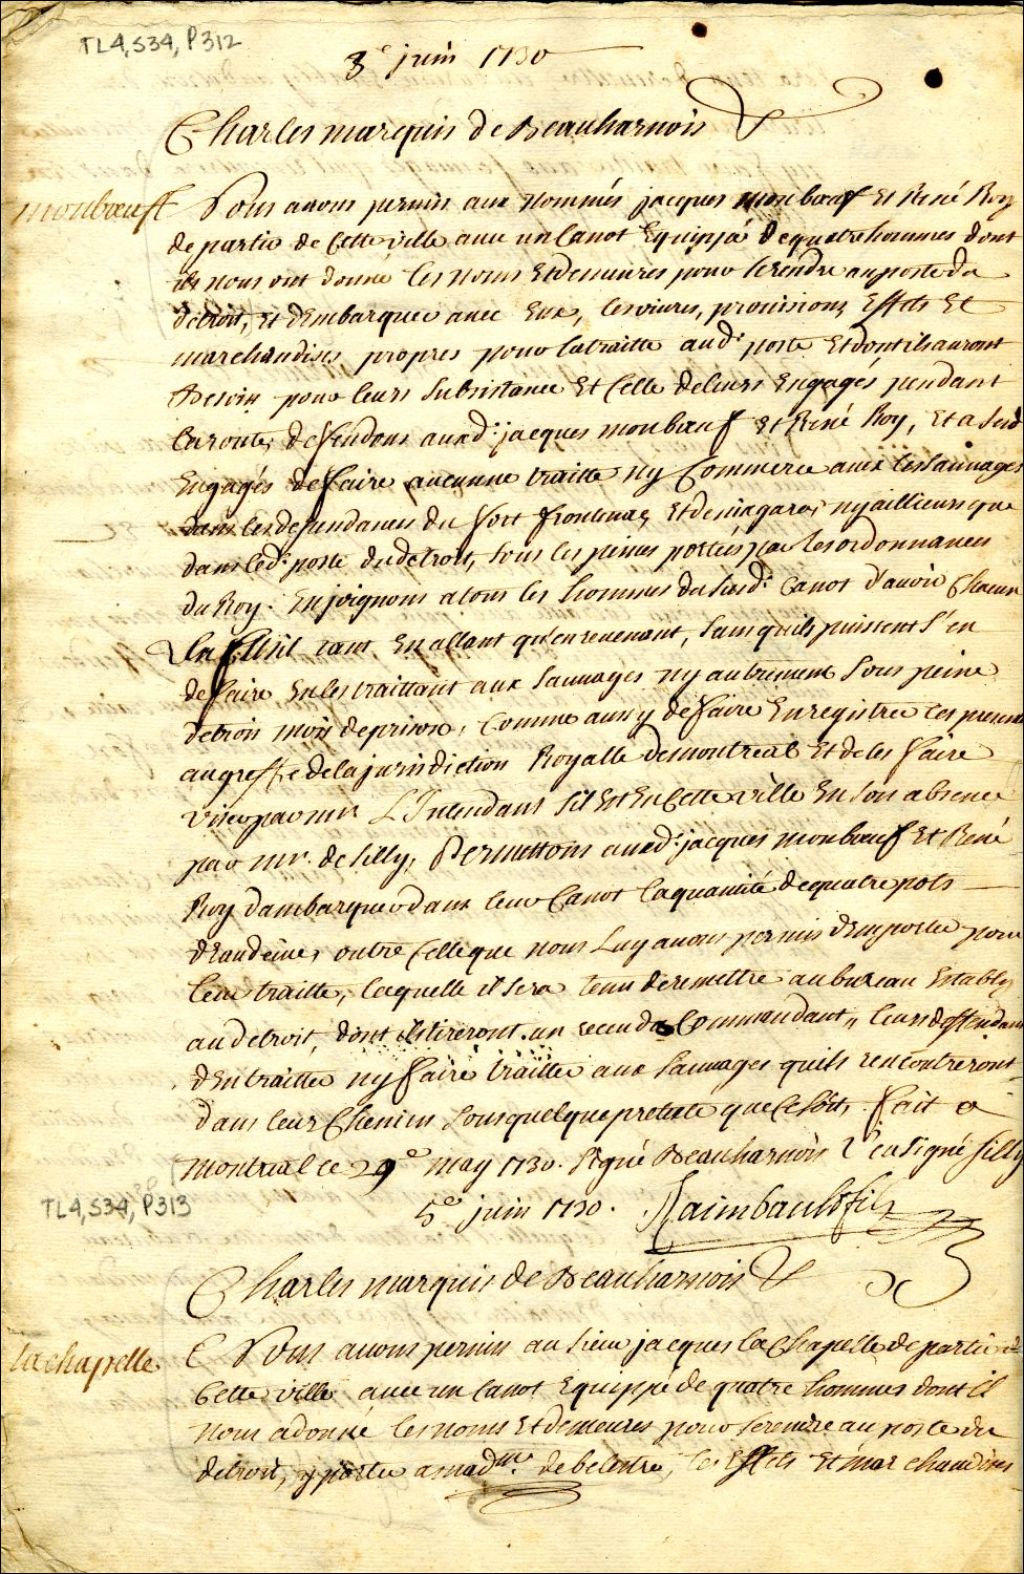 TL4,S34,P312
3e juin 1730
Charles marquis de Beauharnois &
monboeuff Nous avons permis aux nommés jacques monboeuf Et René Roy
de partir de Cette ville avec un Canot Equippé de quatre hommes dont
ils nous ont donné les noms Et demeures pour se rendre au poste du
détroit, Et d'Embarquer avec Eux, les vivres, provisions, Effets Et
marchandises, propres pour la traitte aud: poste Et dont ils auront
Besoin pour leurs subsistance Et Celle de leurs Engagés pendant
la route; deffendons auxd: jacques monboeuf Et René Roy, Et a leurs
Engagés de faire aucunne traitte ny Commerce avec les sauvages
dans les dependances du fort frontenac, Et de niagara, ny ailleurs que
dans led: poste du detroit, sous les peines portées par les ordonnances
du Roy. Enjoignons a tous les hommes du susd: Canot d'avoir Chacun
Un fusil tant En allant qu'en revenant, sans quils puissent s'en
defaire En les traittant aux sauvages ny autrement sous peine
de trois mois de prison, Comme aussy de faire Enregistrer ces presentes
au greffe de la jurisdiction Royalle de montreal Et de les faire
viser par mr. L'Intendant s'il Est En Cette ville En son absence
par mr. de silly, Permettons auxd: jacques monboeuf Et René
Roy d'ambarquer dans leur Canot la quantité de quatre pots
d'Eau de vie, outre Celle que nous Luy avons permis d'Emporter pour
leur traitte, laquelle il sera tenu de remettre au bureau Estably
au detroit, dont ils tireront un recu du Commandant, leurs deffendant
d'En traitter ny faire traitter aux sauvages quils rencontreront
dans leur Chemins sous quelque pretexte que Ce soit, fait a
montreal le 29e may 1730. signé Beauharnois & vu signé silly
TL4,S34,P313
5e juin 1730. Raimbault fils
Charles marquis de Beauharnois &
lachapelle. Nous avons permis au sieur jacques la Chapelle de partir de
Cette ville avec un Canot Equippé de quatre hommes dont il
nous a donné les noms Et demeures pour se rendre au poste du
detroit, y porter a mad.me de belestre, les Effets Et marchandises